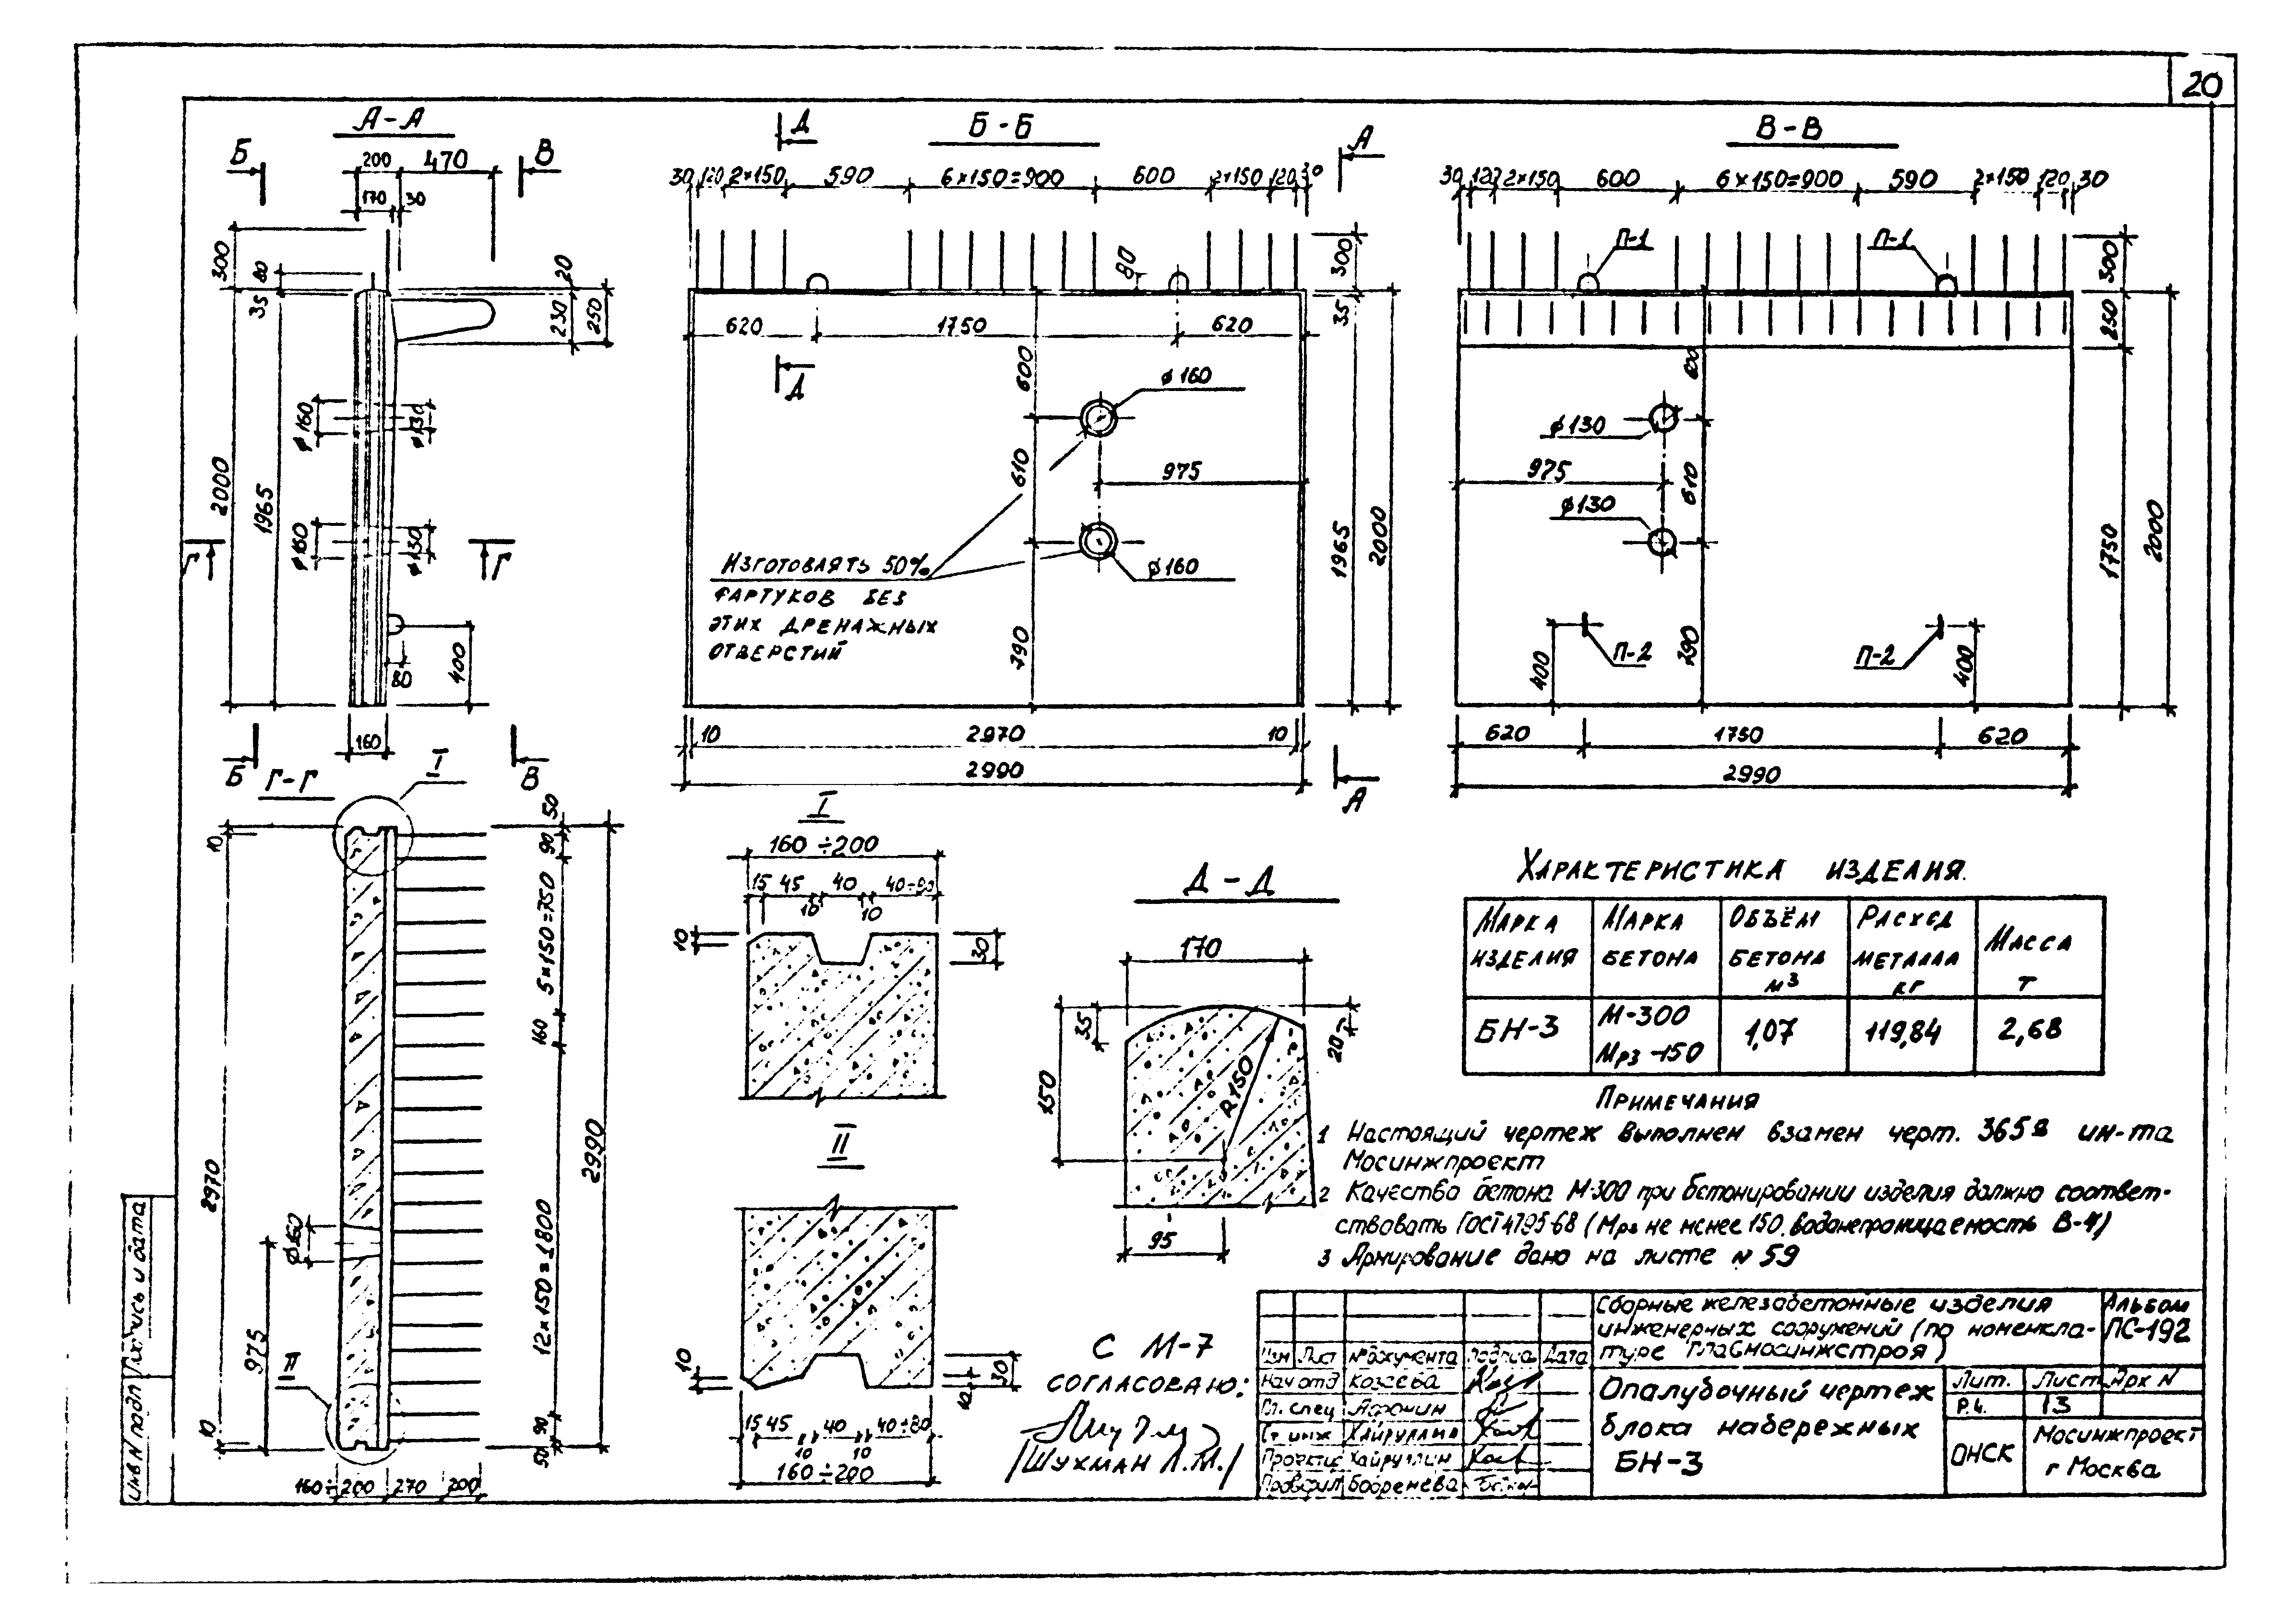 20
А-А
Б
В
200
470
170
30
300
80
35
20
230
250
ø160
ø130
2000
1965
ø160
ø130
Г
Г
400
80
160
Б
В
Б-Б
Д
А
30
120
2×150
590
6×150=900
600
2×150
120
30
80
300
35
620
1750
620
Д
600
ø160
610
975
ø160
Изготовлять 50%
фартуков без
этих дренажных
отверстий
790
1965
2000
10
2970
10
2990
А
В-В
30
2×150
600
6×150=900
590
2×150
120
30
П-1
П-1
300
250
600
ø130
975
610
ø130
1750
2000
400
П-2
П-2
400
620
1750
620
2990
Г-Г
I
10
50
90
5×150=750
160
2970
2990
ø160
12×150=1800
975
II
10
90
50
160÷200
270
200
I
160÷200
15
45
40
10
10
10
30
II
10
30
10
15
45
40
40÷80
10
10
160÷200
Д-Д
170
35
20
150
R150
95
Характеристика изделия.
Марка изделия
Марка бетона
Объём бетона м³
Расход металла кг
Масса т
БН-3
М-300 Мрз-150
1,07
119,84
2,68
Примечания
1 Настоящий чертеж выполнен взамен черт. ин-та
Мосинжпроект
2 Качество бетона М-300 при бетонировании изделия должно соответ-
ствовать ГОСТ 4795-68 (Мрз не менее 150, водонепроницаемость В-4)
3 Армирование дано на листе N 59
С М-7
согласовано:
/Шухман Л.М./
Сборные железобетонные изделия
инженерных сооружений (по номенкла-
туре Главмосинжстроя)
Альбом
ПС-192
Изм Лист № документа Подпись Дата
Нач отд Козеева
Гл. спец Афонин
Ст. инж Хайруллина
Проектир Хайруллин
Проверил Бобренева
Опалубочный чертеж
блока набережных
БН-3
Лит. Лист Арх N
Р.ч. 13
ОНСК
Мосинжпроект
г Москва
Подпись и дата
Инв N подл